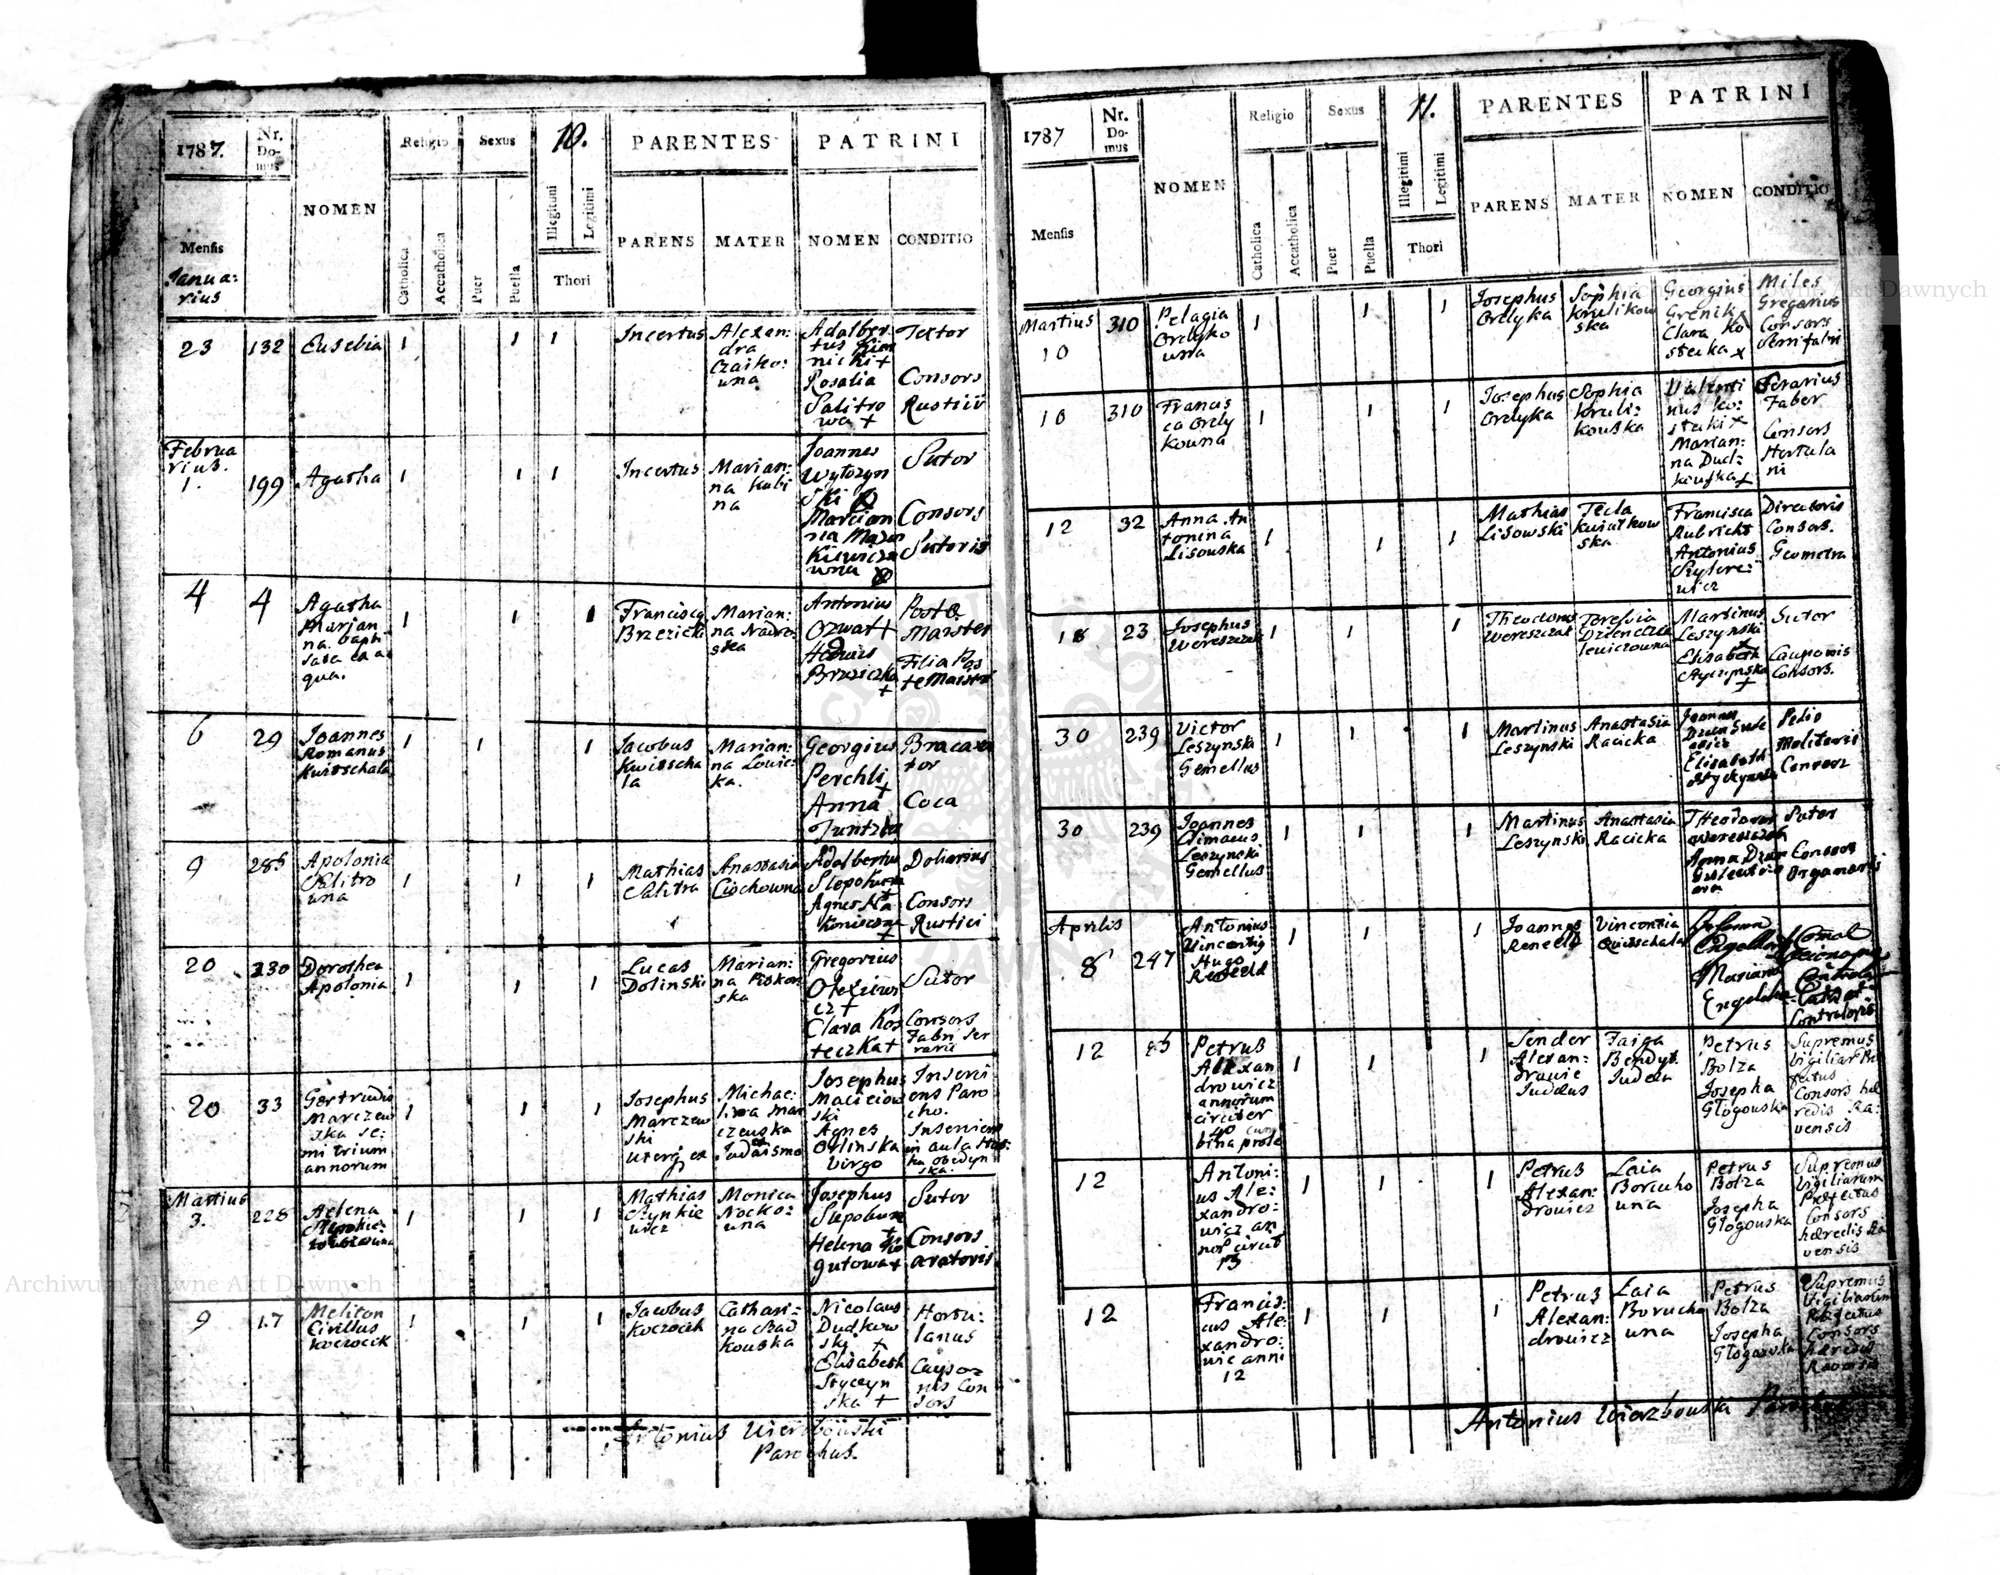 1787.
Nr.
Do-
mus
NOMEN
Religio
Sexus
10.
PARENTES
PATRINI
Mensis
Catholica
Accatholica
Puer
Puella
Illegitimi
Legitimi
Thori
PARENS
MATER
NOMEN
CONDITIO
Janua:
rius
23
132
Eusebia
1
1
1
Incertus
Alexan:
dra
Czaiko:
wna
Adalber
tus
nicki +
Rosalia
Salitro
wa +
Textor
Consors
Rustici
Februa
rius.
1.
199
Agatha
1
1
1
Incertus
Marian:
na Kubi
na
Joannes
Wytozyn
ski
Marian
na Mazur
kiewicz
wna
Sutor
Consors
Sutoris
4
4
Agatha
Marian
na bapti
sata ex a
qua.
1
1
1
Franciscq
Brzezicki
Marian:
na
ska
Antonius
Ozwat +
Brzeziczka
+
Posto
Maister
Filia Pos
te Maistri
6
29
Joannes
Romanus
Kwieschala
1
1
1
Jacobus
Kwiescha
la
Marian:
na Lowic
ka.
Georgius
Perchli
+
Anna
Juntzka
Braxa
tor
Coca
9
286
Apolonia
Salitro
wna
1
1
1
Mathias
Salitra
Anastasia
Ciochowna
Adalbertus
Slepokura
+
Agnes Na
Konieczna
+
Doliarius
Consors
Rustici
20
230
Dorothea
Apolonia
1
1
1
Lucas
Dolinski
Marian:
na Piskor
ska
Gregorius
Olexiewi
cz +
Clara Kos
teczka +
Sutor
Consors
Fabri fer
rarii
20
33
Gertrudis
Marczew
ska se:
mi trium
annorum
1
1
1
Josephus
Marczew
ski
uterq ex
Michae:
lina Mar
czewska
Judaismo
Josephus
Maciciow
ski
Agnes
Orlinska
Virgo
Inservi
ens Paro
cho.
Inserviens
in aula
Martius
3.
228
Helena
1
1
1
Mathias
Szynkie
wicz
Monica
Nocko:
wna
Josephus
Slepokura
+
Helena
gutowa +
Sutor
Consors
aratoris
9
17
Meliton
Cirillus
Koczocik
1
1
1
Jacobus
Koczocik
Cathari:
na Rad
kouska
Nicolaus
Dudkow
ski +
Elisabeth
Styczyn
ska +
Hortu:
lanus
Caupo:
nis Con
sors
Antonius Wierzbouski
Parochus.
1787
Nr.
Do-
mus
NOMEN
Religio
Sexus
11.
PARENTES
PATRINI
Mensis
Catholica
Accatholica
Puer
Puella
Illegitimi
Legitimi
Thori
PARENS
MATER
NOMEN
CONDITIO
Martius
10
310
Pelagia
Ordyko
wna
1
1
1
Josephus
Ordyka
Sophia
Krulikow
ska
Georgius
Grenik
Clara Ko
stecka x
Miles
Gregarius
Consors
10
310
Francis
ca Ordy
kowna
1
1
1
Josephus
Ordyka
Sophia
Kruli:
kouska
Valenti
nus Ko:
stecki x
Marian:
na Dud:
kiewska +
Ferarius
Faber
Consors
Hortula
ni
12
32
Anna An
tonina
Lisouska
1
1
1
Mathias
Lisowski
Tecla
Kwiatkow
ska
Francisca
Rubricht
Antonius
Szylore:
wicz
Directoris
Consors.
Geometra
18
23
Josephus
Wereszczak
1
1
1
Theodorus
Wereszczak
Teresia
Martinus
Leszynski
Elisabeth
Styczynska
+
Sutor
Cauponis
Consors.
30
239
Victor
Leszynski
Gemellus
1
1
1
Martinus
Leszynski
Anastasia
Racicka
Joannes
Elisabeth
Pelio
Molitoris
Consors
30
239
Joannes
Climacus
Leszynski
Gemellus
1
1
1
Martinus
Leszynski
Anastasia
Racicka
Theodorus
Wereszczak
Anna
Sutor
Consors
Organarii
Aprilis
8
247
Antonius
Vincentiq
Hugo
1
1
1
Joannes
Vincentia
Quieschala
12
Petrus
Alexan
drowicz
annorum
circiter
40 cum
bina prole
1
1
1
Sender
Alexan:
drowic
Judeus
Faiga
Bendyt.
Judea
Petrus
Bolza
Josepha
Głogouska
Supremus
Vigiliar Præ
fectus
Consors hæ
redis Ra:
vensis
12
Antoni:
us Ale:
xandro:
wicz an
nor circit
13
1
1
1
Petrus
Alexan:
drowicz
Laia
Borucho
wna
Petrus
Bolza
Josepha
Głogouska
Supremus
Vigiliarum
Præfectus
Consors
hæredis Ra
vensis
12
Francis:
cus Ale:
xandro:
wic anni
12
1
1
1
Petrus
Alexan:
drowicz
Laia
Borucho
wna
Petrus
Bolza
Josepha
Głogowska
Supremus
Vigiliarum
Præfectus
Consors
hæredis
Ravensis
Antonius Wierzbouski Parochus
Archiwum Główne Akt Dawnych